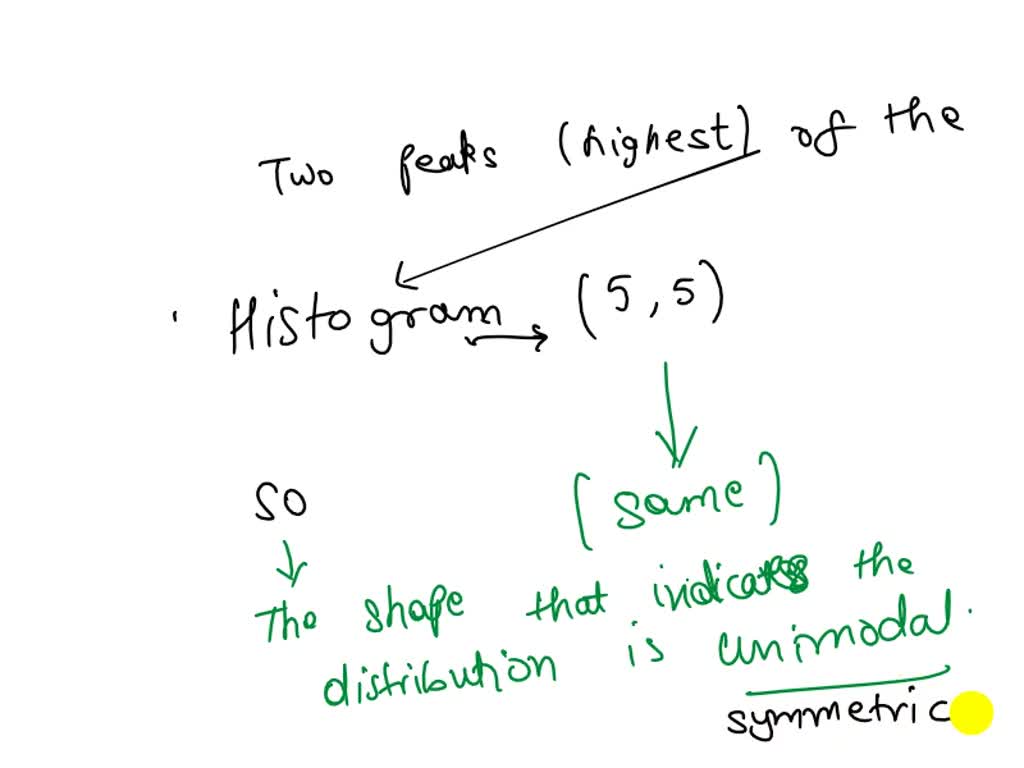 Two peaks (highest) of the
Histogram → (5,5)
so (same)
The shape that indicates the
distribution is unimodal.
symmetric